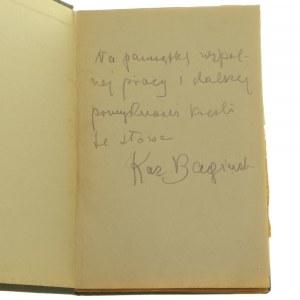 Na pamiątkę wspól-
nej pracy i dalszej
pomyślności kreśli
te słowa
Kaz Bagiński